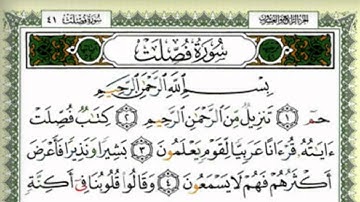 سُورَةُ فُصِّلَتْ ٤١
الجزء الرابع والعشرون
سُورَةُ فُصِّلَتْ
بِسْمِ ٱللَّهِ ٱلرَّحْمَٰنِ ٱلرَّحِيمِ
حمٓ ١ تَنزِيلٌ مِّنَ ٱلرَّحْمَٰنِ ٱلرَّحِيمِ ٢ كِتَٰبٌ فُصِّلَتْ
ءَايَٰتُهُۥ قُرْءَانًا عَرَبِيًّا لِّقَوْمٍ يَعْلَمُونَ ٣ بَشِيرًا وَنَذِيرًا فَأَعْرَضَ
أَكْثَرُهُمْ فَهُمْ لَا يَسْمَعُونَ ٤ وَقَالُوا۟ قُلُوبُنَا فِىٓ أَكِنَّةٍ